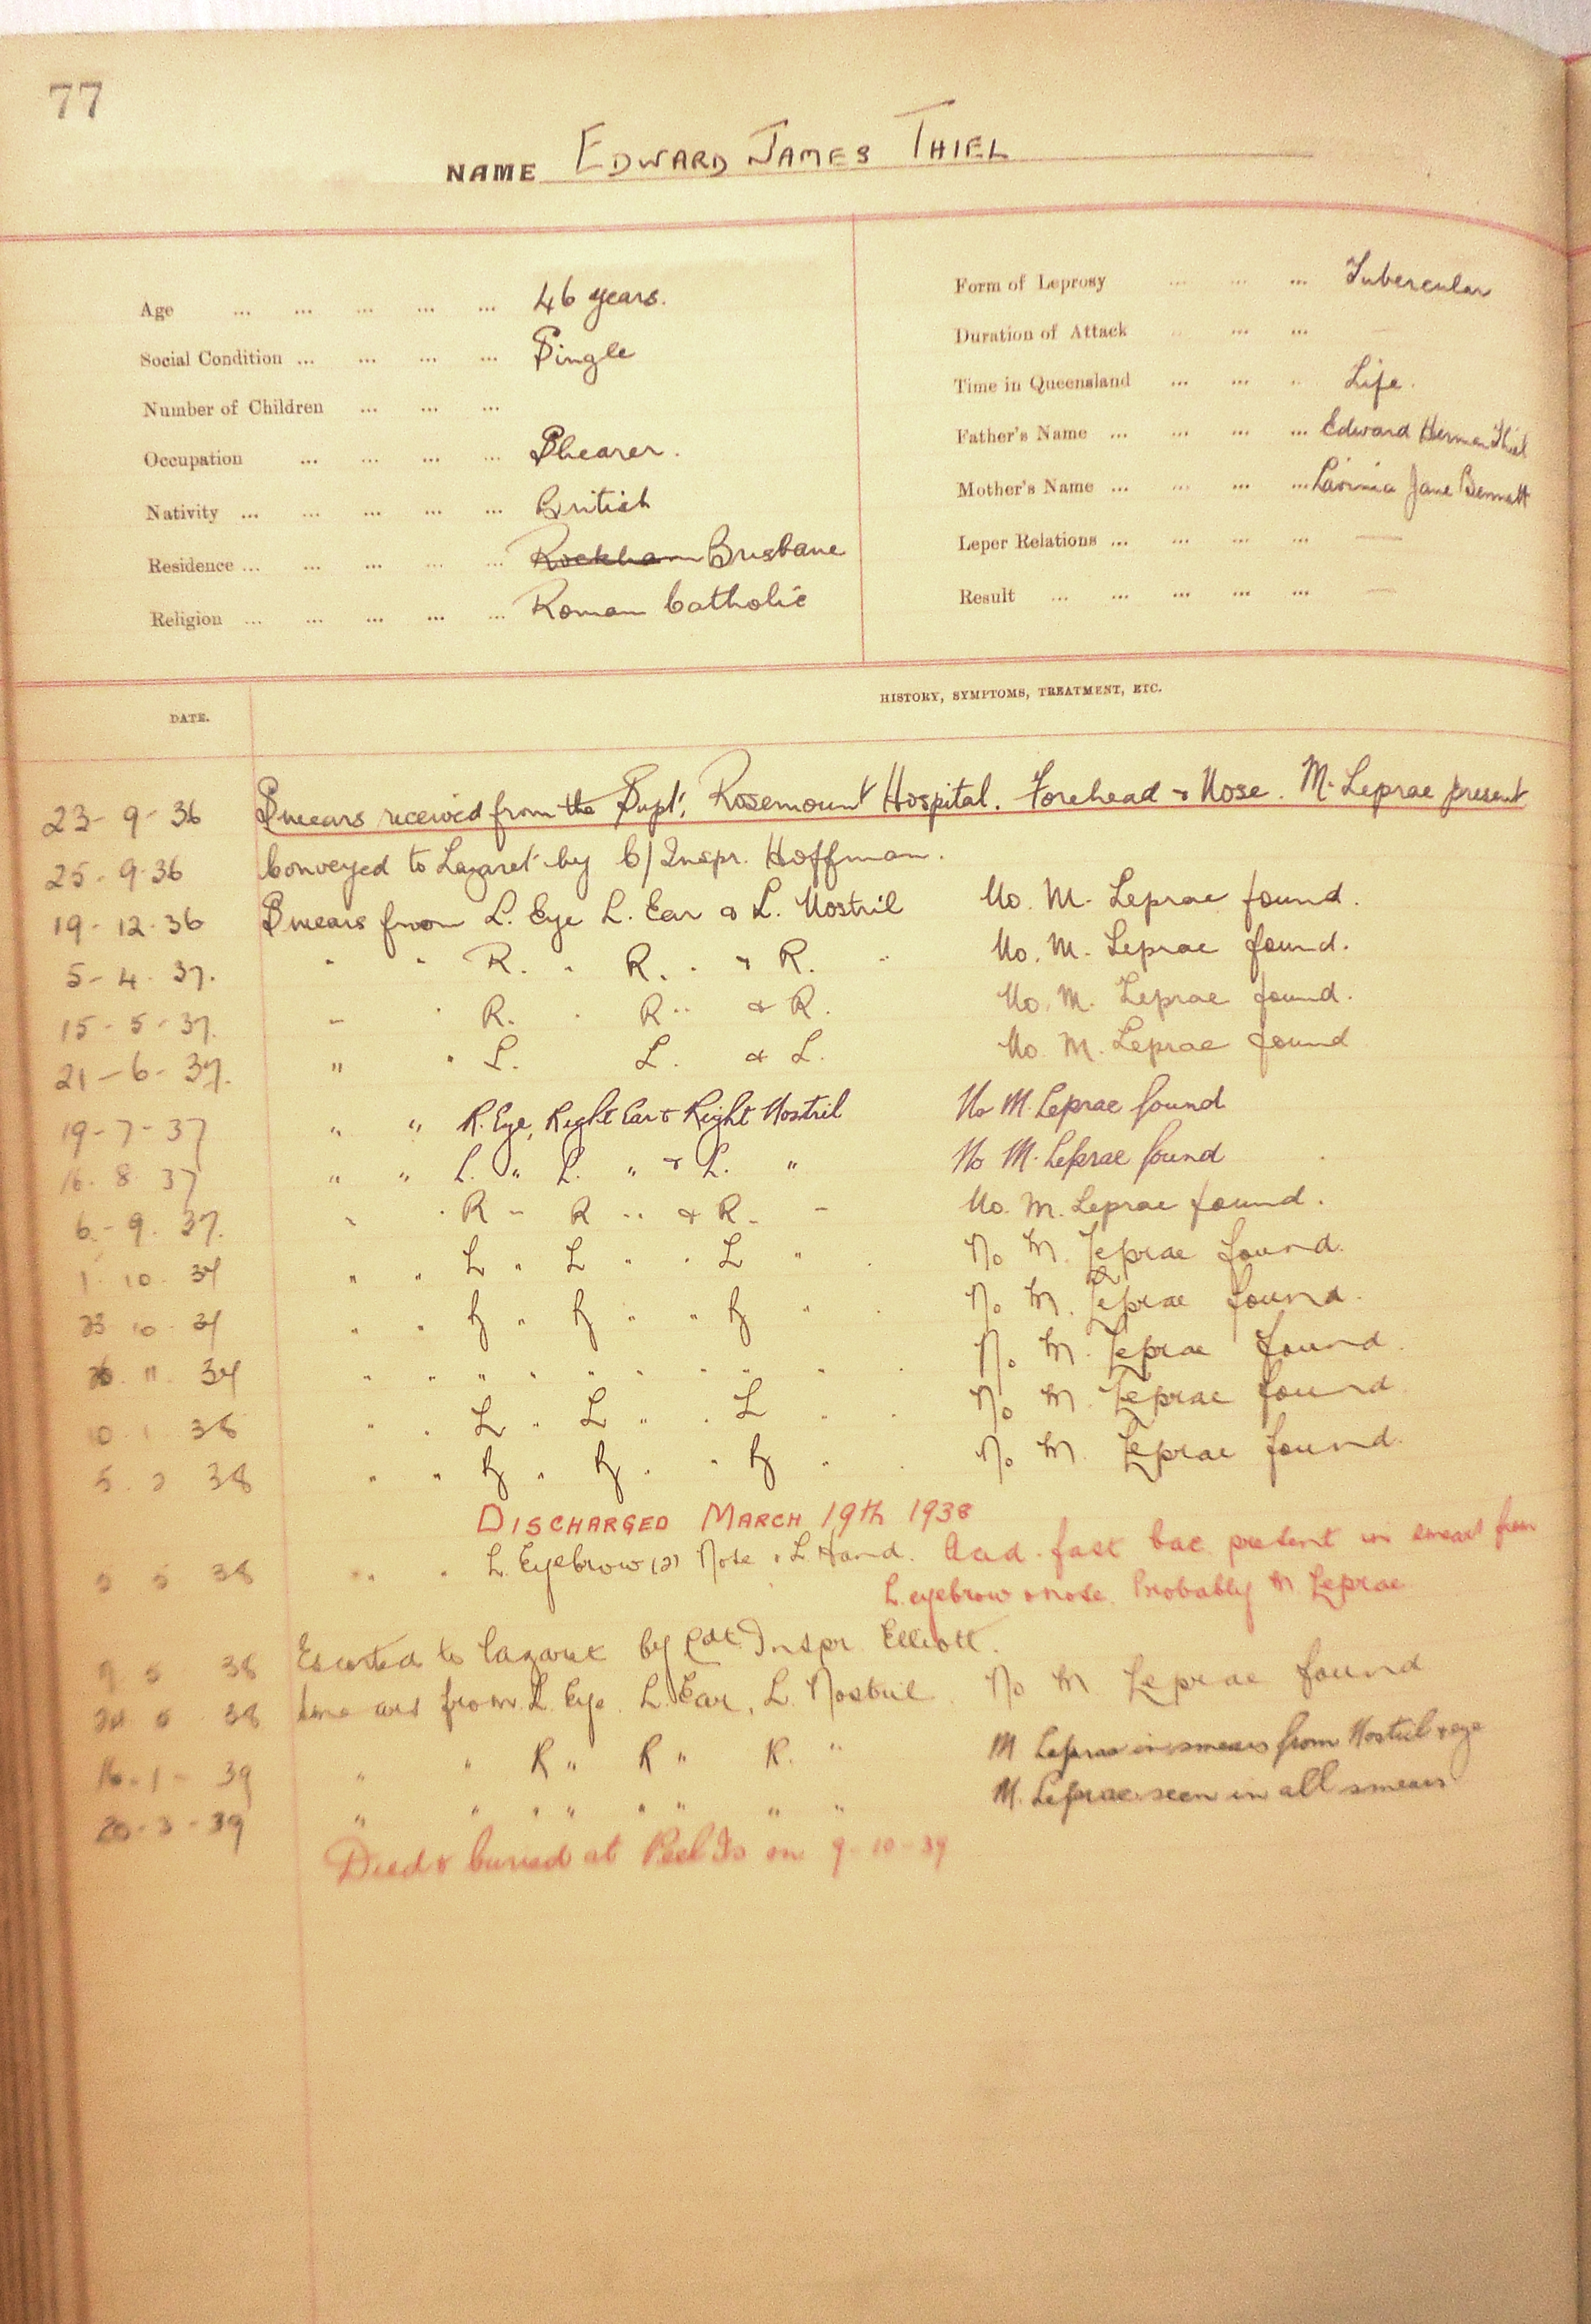 77
NAME EDWARD JAMES THIEL
Age ... ... ... ... ... 46 years.
Social Condition ... ... ... ... Single
Number of Children ... ... ...
Occupation ... ... ... ... Shearer.
Nativity ... ... ... ... ... British
Residence ... ... ... ... ... Rockham Brisbane
Religion ... ... ... ... ... Roman Catholic
Form of Leprosy ... ... ... Tubercular
Duration of Attack ... ... ... —
Time in Queensland ... ... ... Life.
Father's Name ... ... ... ... Edward Herman Thiel
Mother's Name ... ... ... ... Lavinia Jane Bennett
Leper Relations ... ... ... ... —
Result ... ... ... ... ... —
DATE. HISTORY, SYMPTOMS, TREATMENT, ETC.
23-9-36 Smears received from the Supt, Rosemount Hospital. Forehead & Nose. M. Leprae present
25-9-36 Conveyed to Lazaret by C/Inspr. Hoffman.
19-12-36 Smears from L. Eye L. Ear & L. Nostril No. M. Leprae found.
5-4-37. " " R. " R. " & R. " No. M. Leprae found.
15-5-37. " " R. " R " & R. No. M. Leprae found.
21-6-37. " " L. L. & L. No. M. Leprae found
19-7-37 " " R. Eye, Right Ear & Right Nostril No M. Leprae found
16.8.37 " " L. " L. " & L. " No M. Leprae found
6-9.37. " " R " R " & R. " No. M. Leprae found.
1.10.37 " " L " L " " L " No M. Leprae found.
23.10.37 " " R " R " " R " No M. Leprae found.
11.37 " " " " " " " " " No M. Leprae found.
10.1.38 " " L " L " " L " No M. Leprae found
5.2.38 " " R " R " " R " No M. Leprae found.
DISCHARGED MARCH 19th 1938
5 38 " " L. Eyebrow (2) Nose & L. Hand. Acid-fast bac. present in smears from
L. eyebrow & nose. Probably M. Leprae
9 5 38 Escorted to Lazaret by Inspr. Elliott.
5 38 Smears from L. Eye. L. Ear, L. Nostril No M Leprae found
16-1-39 " " R " R " R. " M Leprae in smears from Nostril & eye
20-3-39 " " " " " " " " M. Leprae seen in all smears
Died & buried at Peel Is on 9-10-39